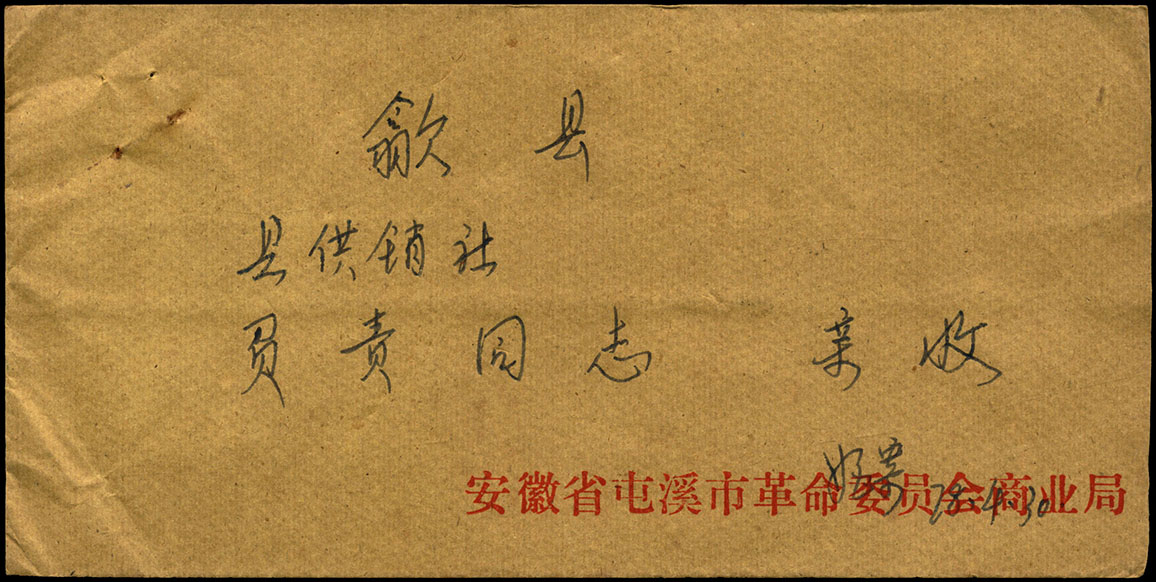 歙 县
县供销社
负责同志 亲收
安徽省屯溪市革命委员会商业局
78.4.30